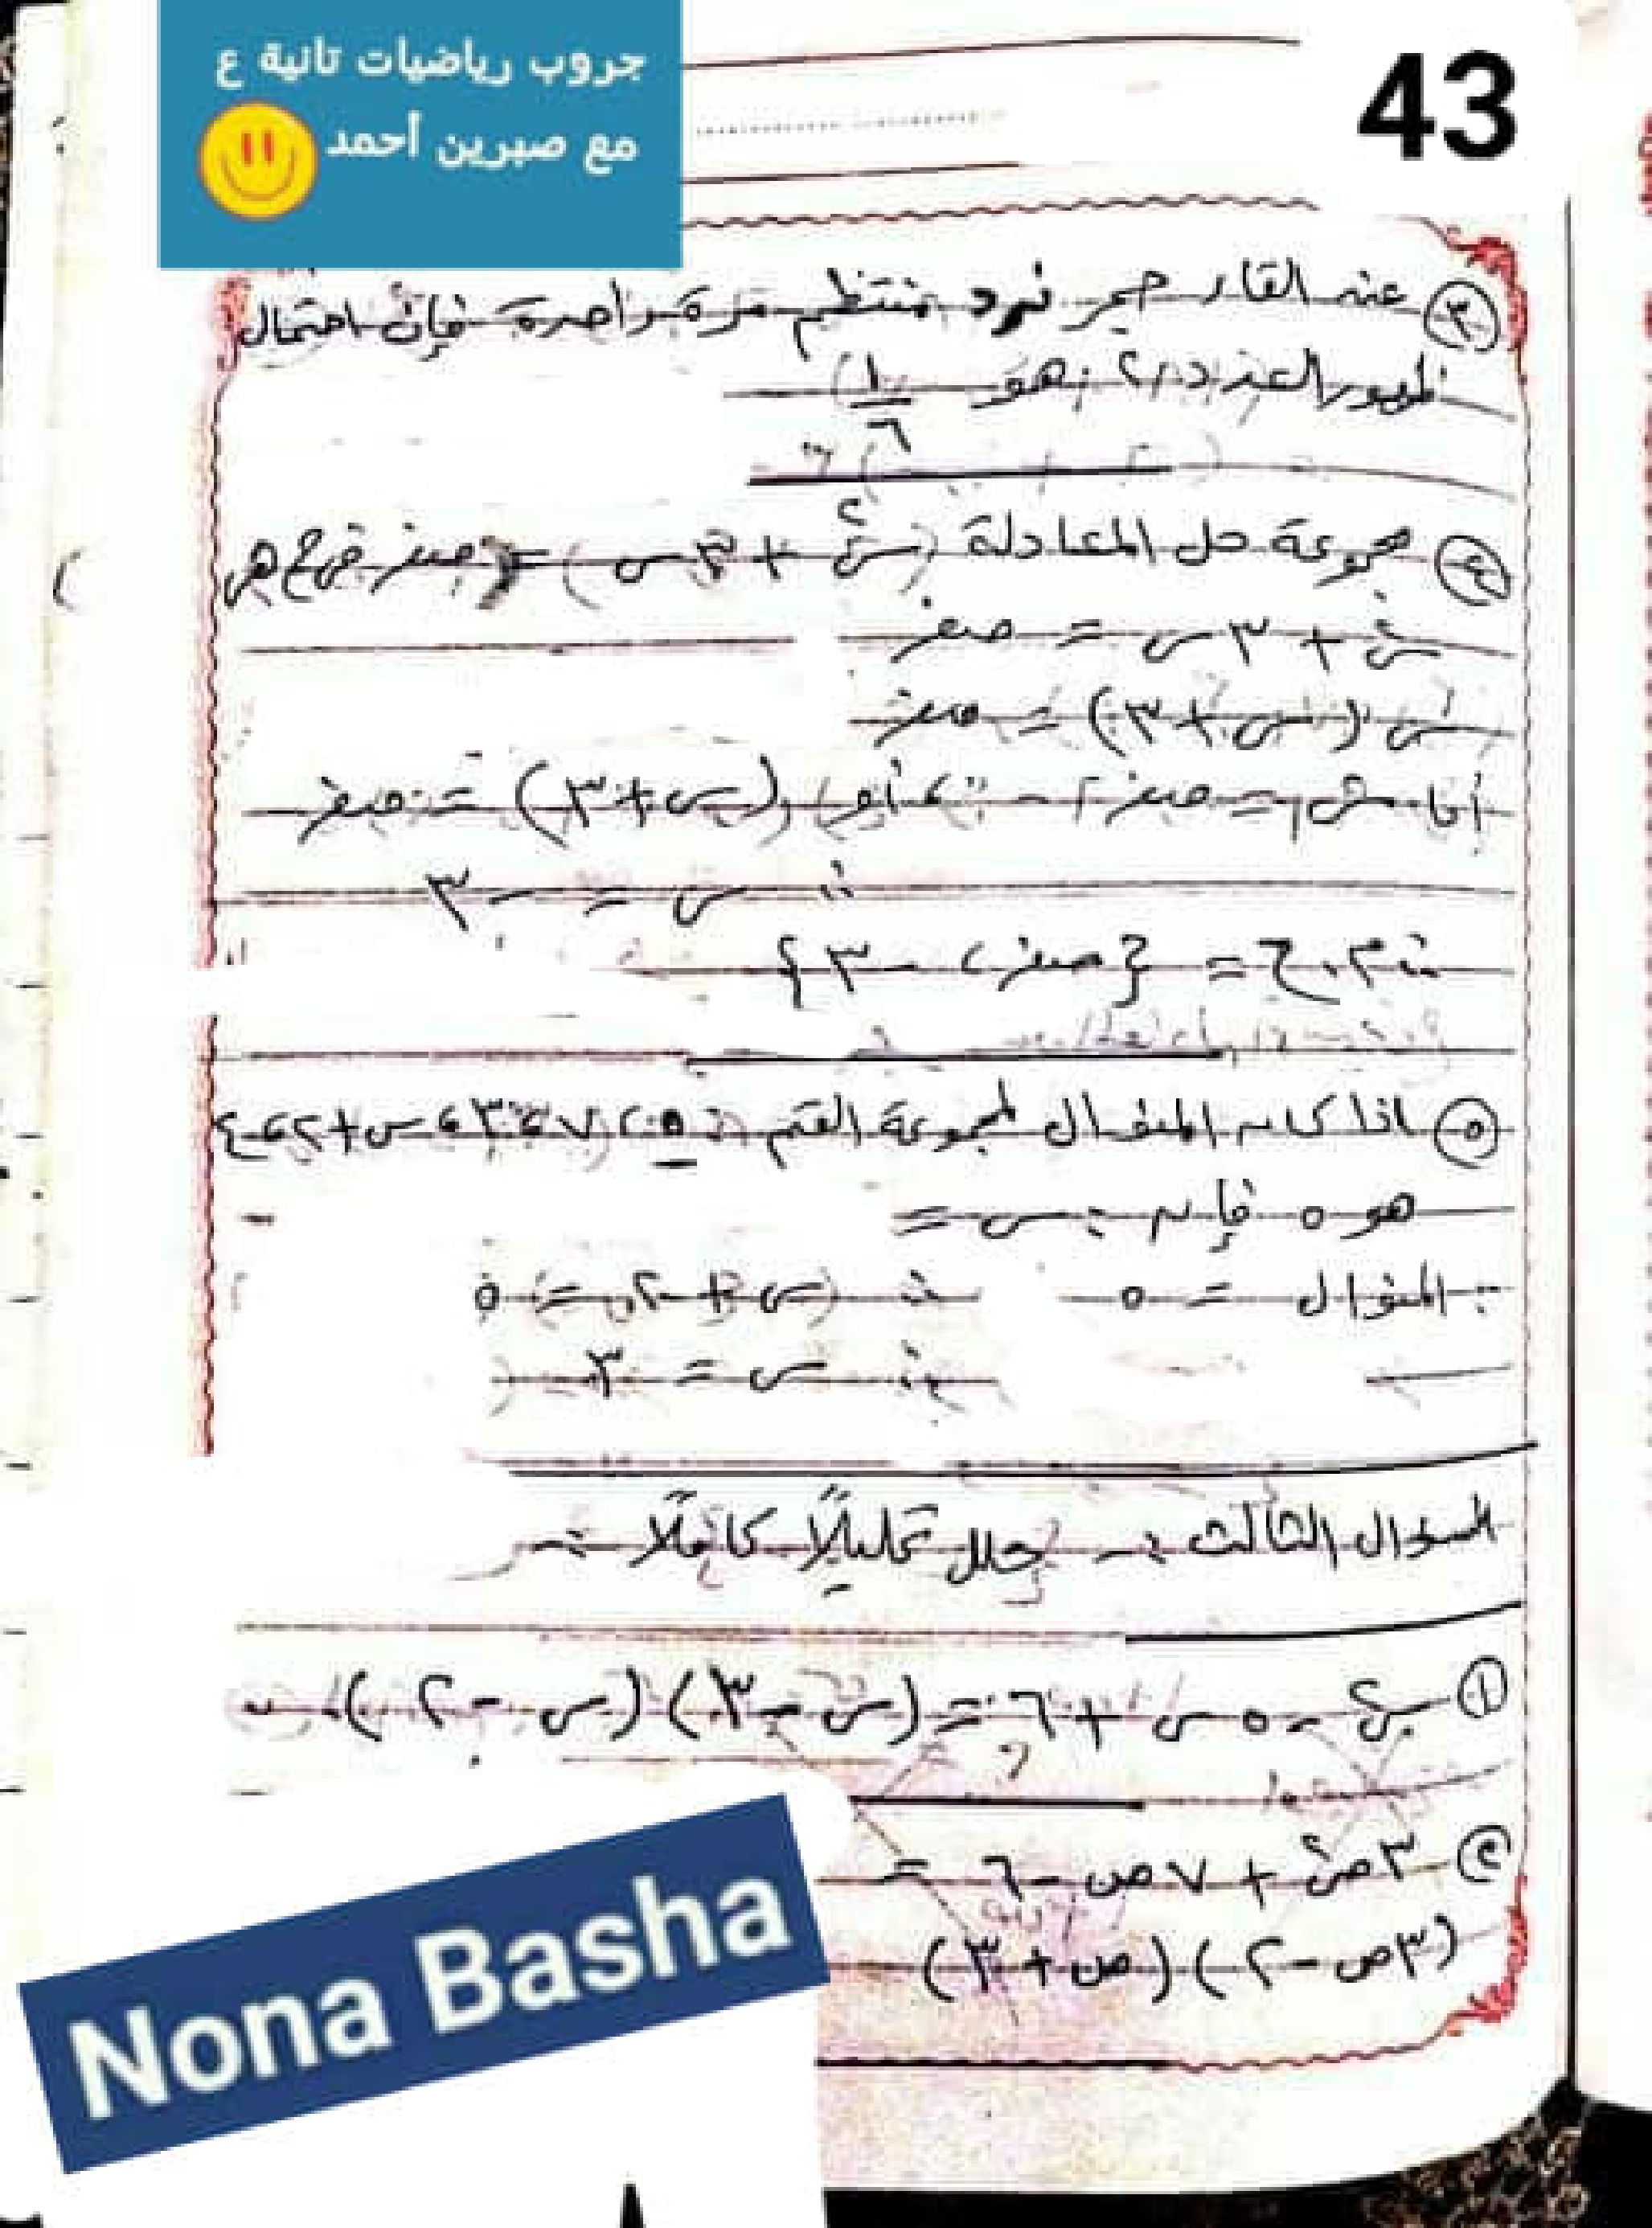 جروب رياضيات تانية ع
مع صبرين أحمد
43
٣ عند القاء حجر نرد منتظم مرة واحدة فإن احتمال
ظهور العدد ٢ هو ١/٦
٤ مجموعة حل المعادلة (س٢ + ٣س) = صفر فى ح هى
س٢ + ٣س = صفر
س (س + ٣) = صفر
أما س = صفر، أو (س + ٣) = صفر
∴ س = -٣
∴ م.ح = {صفر، -٣}
٥ اذا كان المنوال لمجموعة القيم ٥، ٧، ٣، س+٢، ٤
هو ٥ فإن س =
∵ المنوال = ٥ ∴ س + ٢ = ٥
∴ س = ٣
السؤال الثالث :- حلل تحليلًا كاملًا :-
١ س٢ - ٥س + ٦ = (س - ٣) (س - ٢)
٢ ٣ص٢ + ٧ص - ٦ =
(٣ص - ٢) (ص + ٣)
Nona Basha